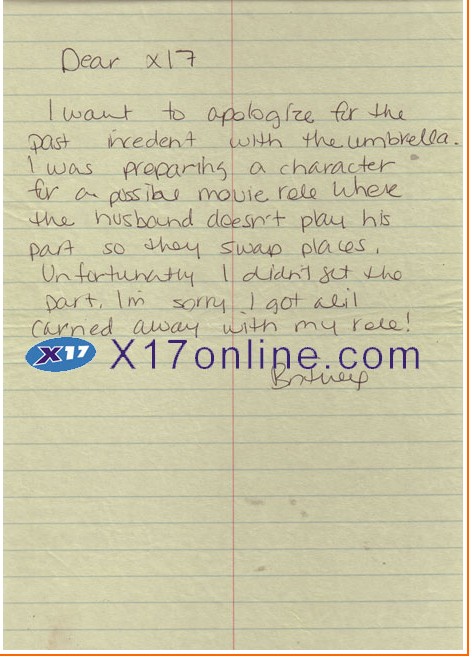 Dear x17
I want to apologize for the
past incedent with the umbrella.
I was preparing a character
for a possible movie role where
the husband doesn't play his
part so they swap places.
Unfortunatly I didn't get the
part. I'm sorry I got alil
carried away with my role!
X17 X17online.com
Britney